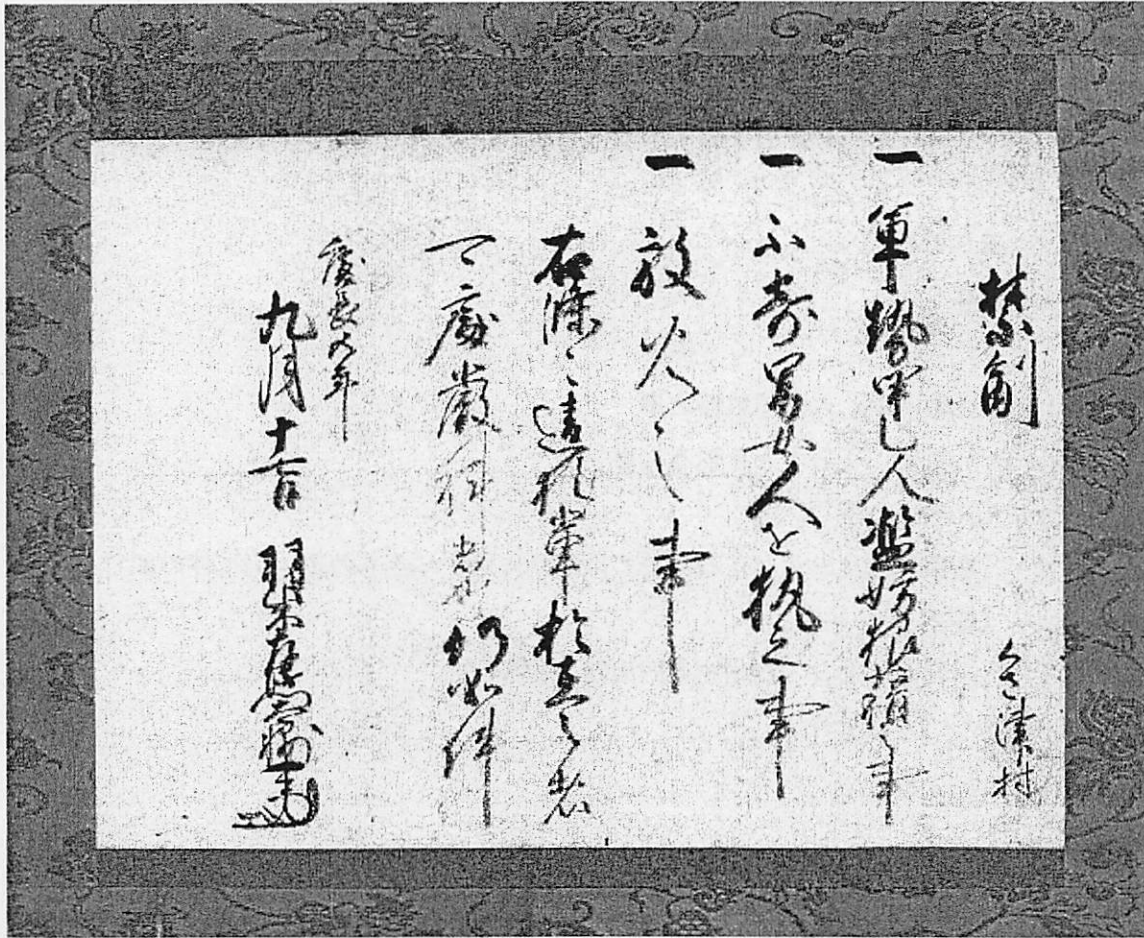 禁制　くさ津村
一 軍勢甲乙人濫妨狼藉事
一 不寄男女人を執之事
一 放火之事
右條々違犯輩於在之者
可處嚴科者也仍如件
慶長五年
九月十七日　羽柴左衛門